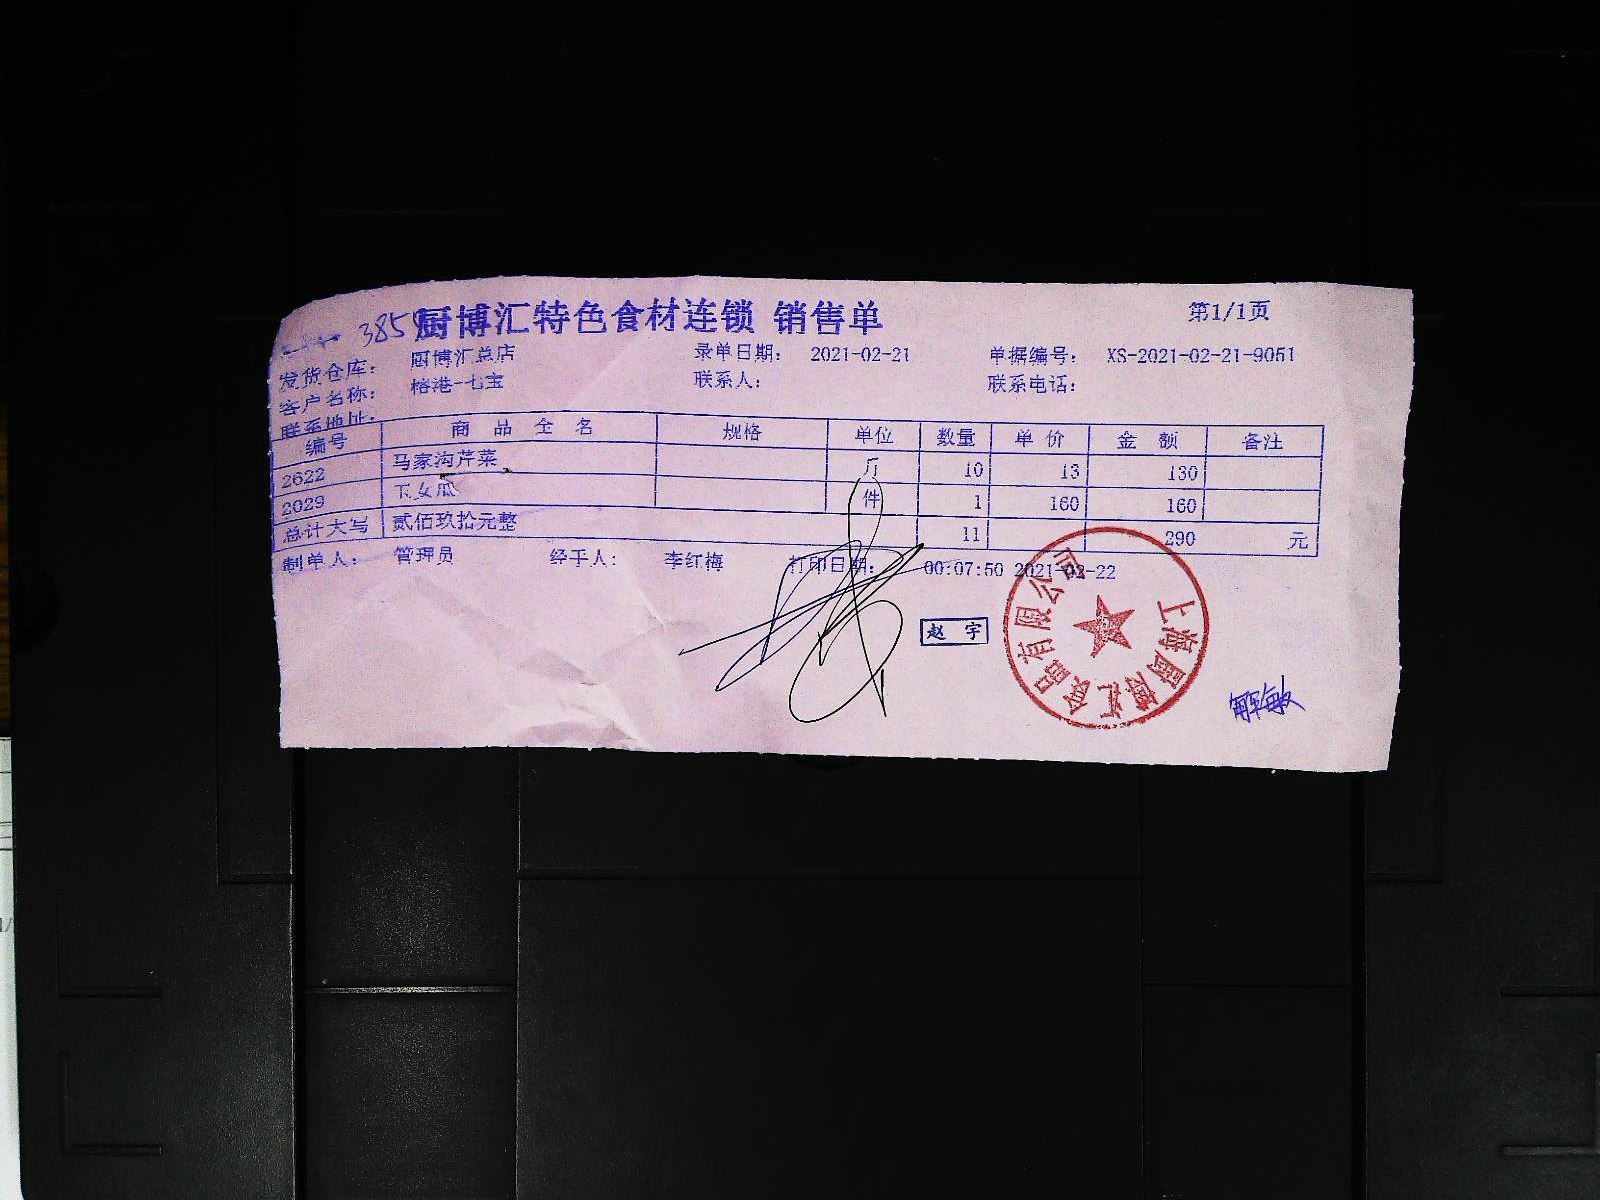 3859
厨博汇特色食材连锁 销售单 第1/1页
发货仓库: 厨博汇总店 录单日期: 2021-02-21 单据编号: XS-2021-02-21-9051
客户名称: 榕港-七宝 联系人: 联系电话:
联系地址:
编号 商品全名 规格 单位 数量 单价 金额 备注
2622 马家沟芹菜 斤 10 13 130
2029 玉女瓜 件 1 160 160
总计大写 贰佰玖拾元整 11 290 元
制单人: 管理员 经手人: 李红梅 打印日期: 00:07:50 2021-02-22
赵宇
上海厨博汇食品有限公司